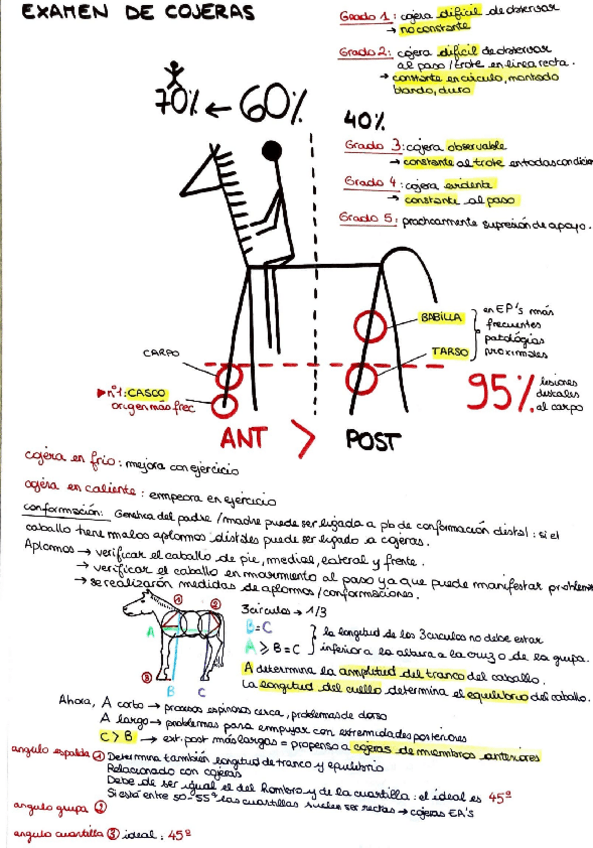 EXAMEN DE COJERAS
Grado 1: cojera difícil de observar
→ no constante
Grado 2: cojera difícil de observar
al paso/trote en línea recta.
→ constante en círculo, montado
blando, duro
70% ← 60%
40%
Grado 3: cojera observable
→ constante al trote en todas condicio
Grado 4: cojera evidente
→ constante al paso
Grado 5: prácticamente supresión de apoyo.
BABILLA
TARSO
en EP's más
frecuentes
patologías
proximales
CARPO
nº1: CASCO
origen más frec
95% lesiones
distales
al carpo
ANT > POST
cojera en frío: mejora con ejercicio
cojera en caliente: empeora en ejercicio
conformación: Genética del padre/madre puede ser ligada a pb de conformación distal: si el
caballo tiene malos aplomos distales puede ser ligado a cojeras.
Aplomos → verificar el caballo de pie, medial, lateral y frente.
→ verificar el caballo en movimiento al paso ya que puede manifestar problem
→ se realizarán medidas de aplomos/conformaciones.
1
2
A
3
B
C
3 círculos → 1/3
B = C
A > B = C
la longitud de los 3 círculos no debe estar
inferior a la altura a la cruz o de la grupa.
A determina la amplitud del tranco del caballo.
La longitud del cuello determina el equilibrio del caballo.
Ahora, A corto → procesos espinosos cerca, problemas de dorso
A largo → problemas para empujar con extremidades posteriores
C > B → ext. post más largas = propenso a cojeras de miembros anteriores
angulo espalda 1 Determina también longitud de tranco y equilibrio
Relacionado con cojeras
Debe de ser igual el del hombro y de la cuartilla: el ideal es 45º
Si está entre 50-55º las cuartillas suelen ser rectas → cojeras EA's
angulo grupa 2
angulo cuartilla 3 ideal: 45º